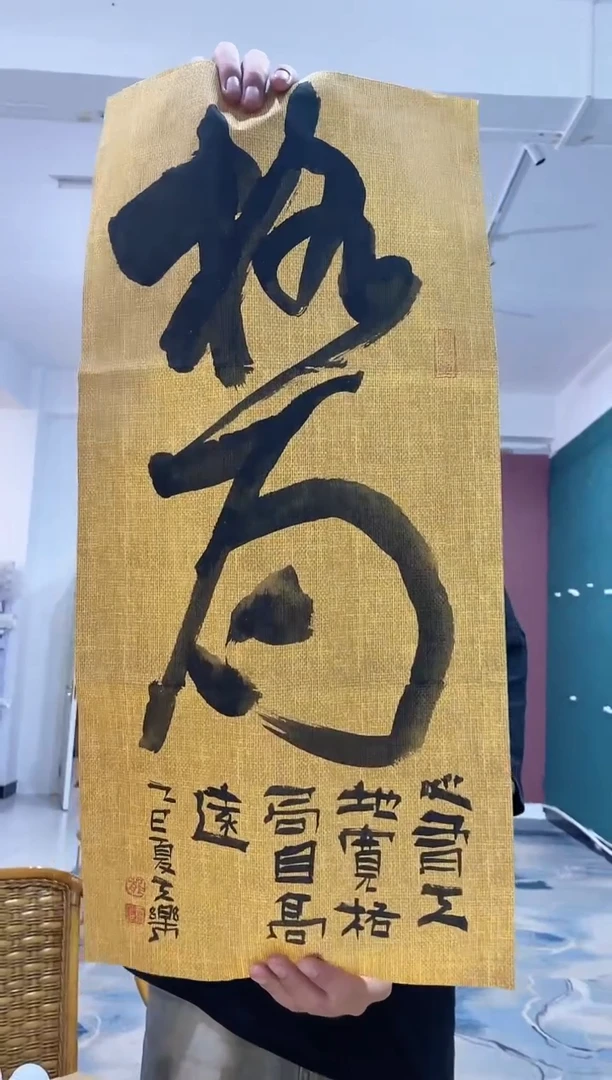 格局
心有天
地寬格
局自高
遠
乙巳夏天樂